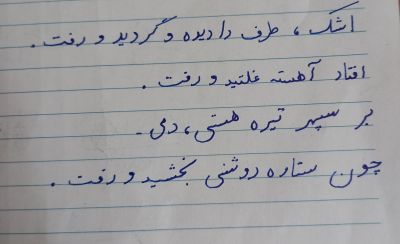 اشک، طرف دا دیده و گردید و رفت.
افتاد آهسته غلتید و رفت.
بر سپهر تیره هستی، دمی.
چون ستاره روشنی بخشید و رفت.